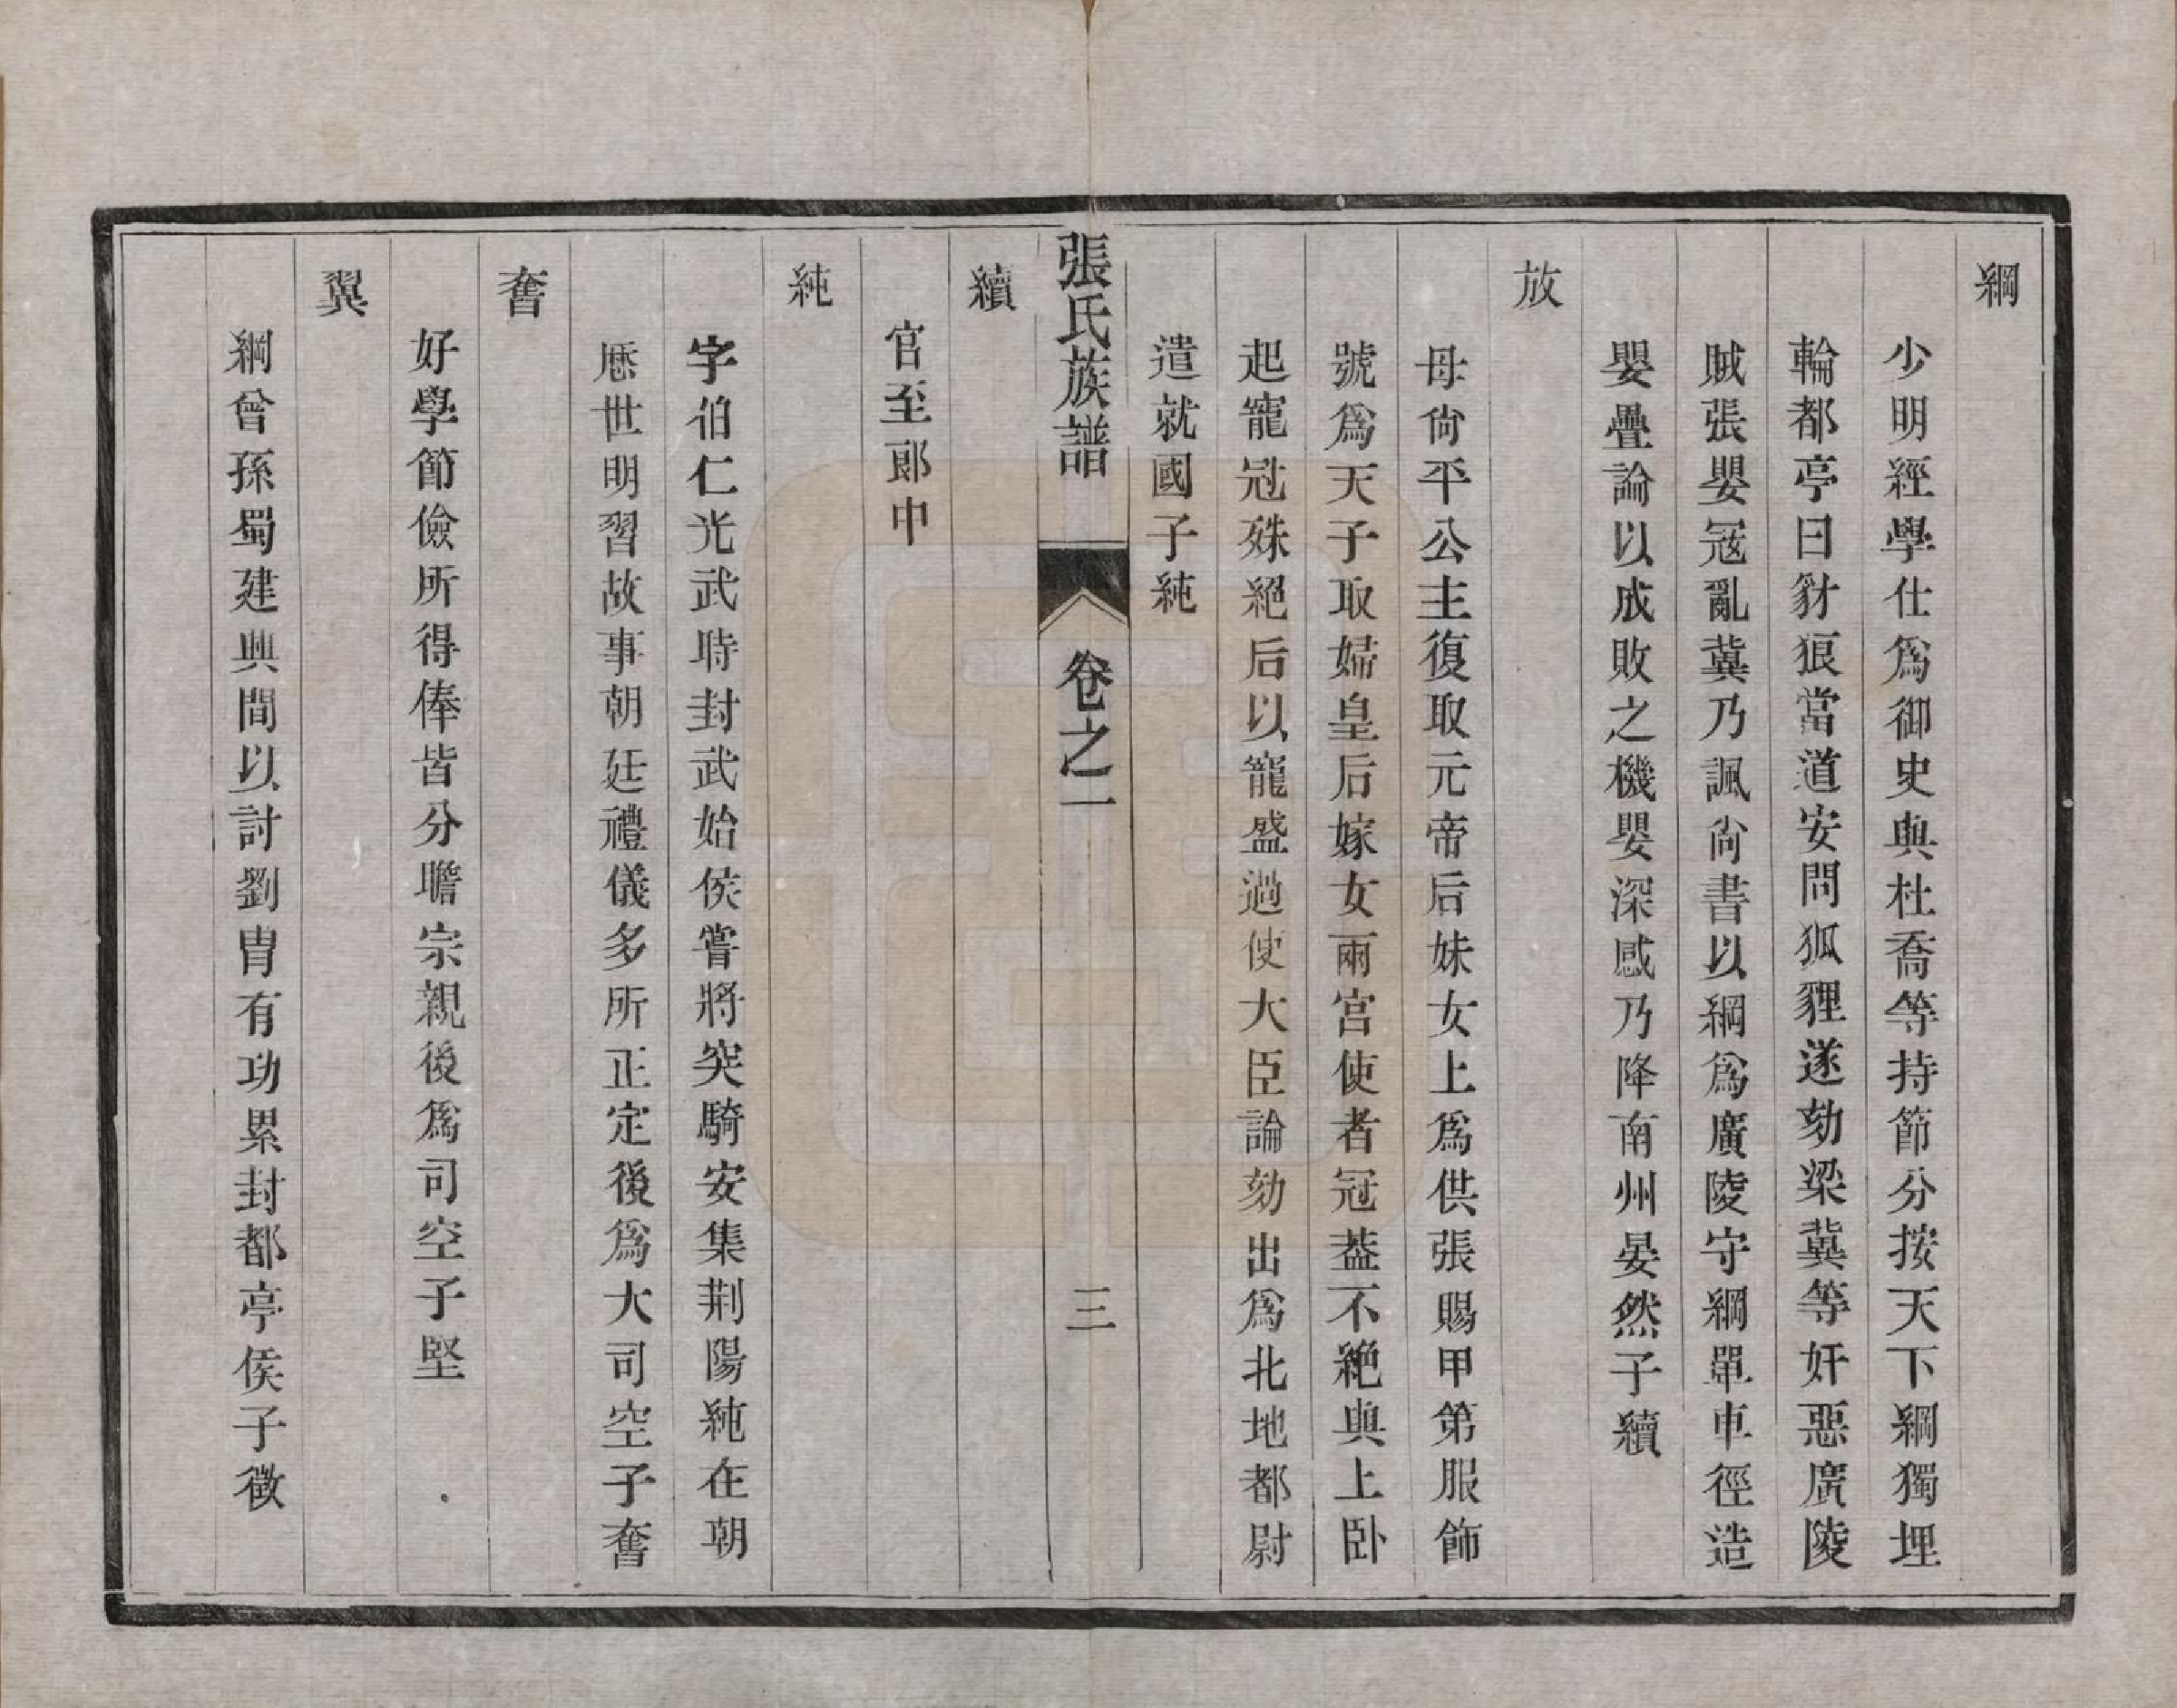 綱
少明經學仕爲御史與杜喬等持節分按天下綱獨埋
輪都亭曰豺狼當道安問狐貍遂劾梁冀等奸惡廣陵
賊張嬰冦亂冀乃諷尙書以綱爲廣陵守綱單車徑造
嬰疊論以成敗之機嬰深感乃降南州晏然子續
放
母尙平公主復取元帝后妹女上爲供張賜甲第服飾
號爲天子取婦皇后嫁女兩宮使者冠葢不絶與上卧
起寵冠殊絕后以寵盛過使大臣論劾出爲北地都尉
遣就國子純
張氏族譜 卷之一 三
續
官至郎中
純
字伯仁光武時封武始侯嘗將突騎安集荆陽純在朝
厯世明習故事朝廷禮儀多所正定後爲大司空子奮
奮
好學節儉所得俸皆分贍宗親後爲司空子堅
翼
綱曾孫蜀建興間以討劉胄有功累封都亭侯子徵